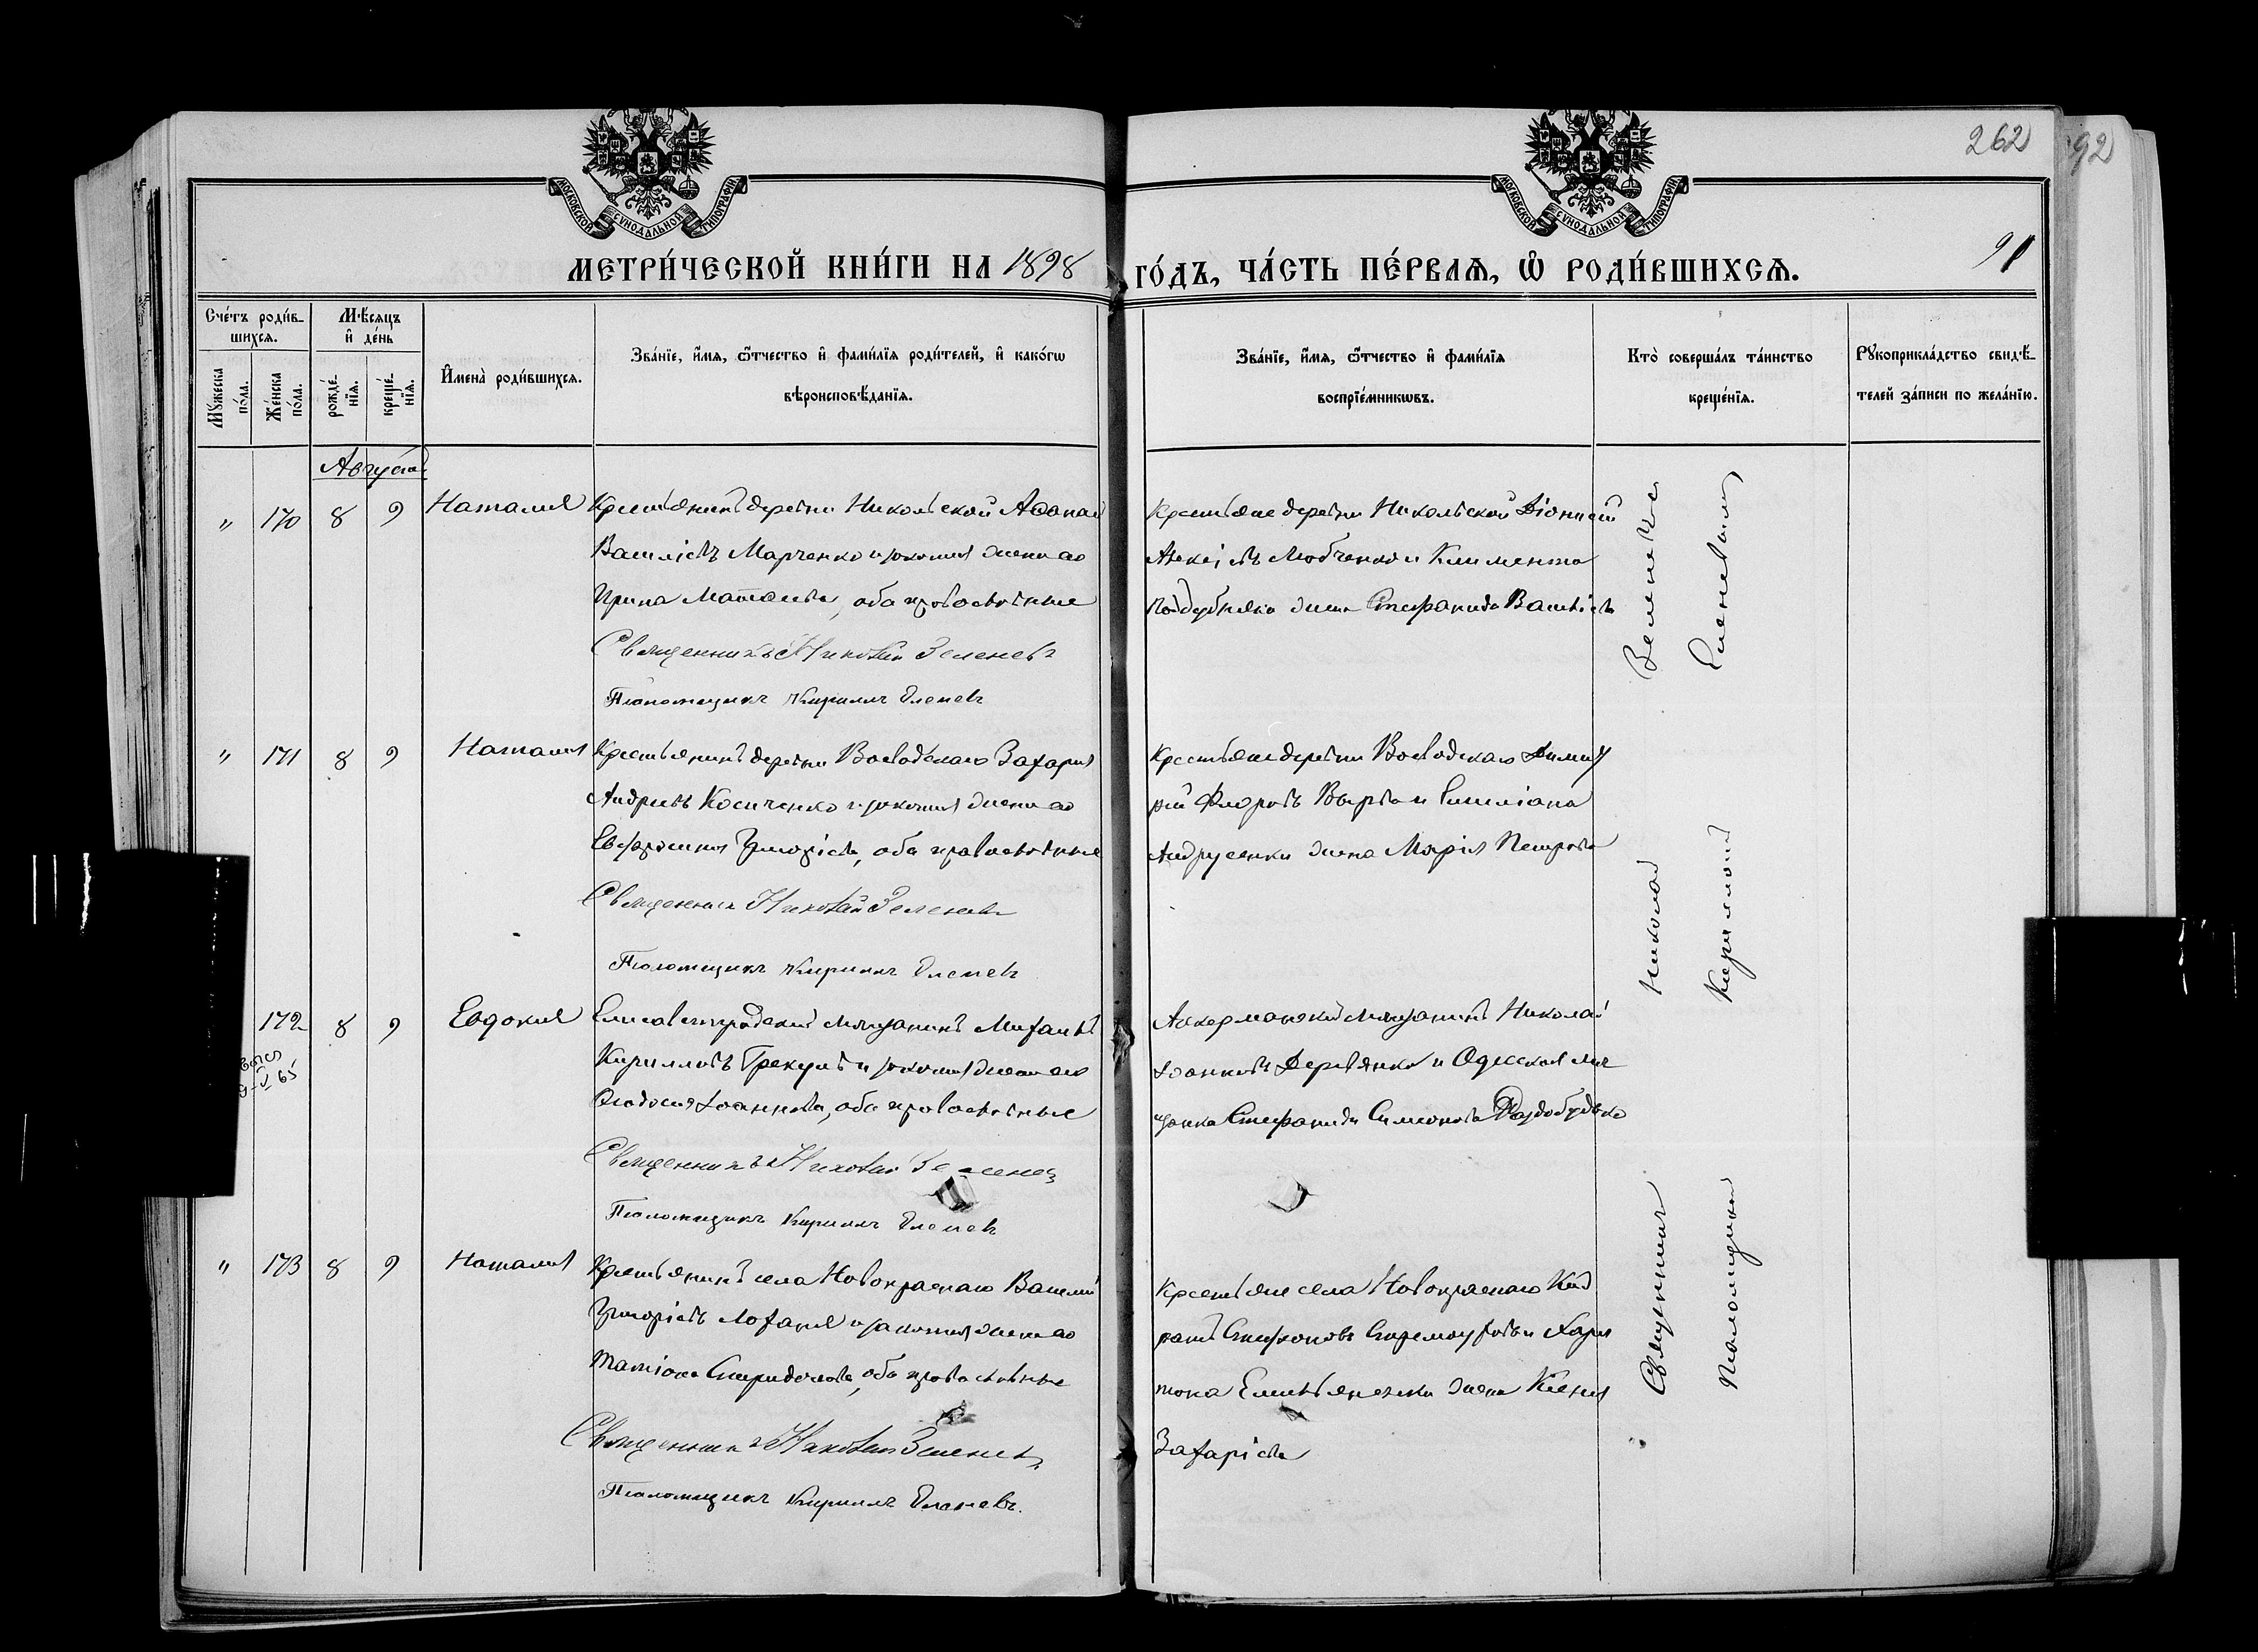 262
92
МОСКОВСКОЙ СѴНОДАЛЬНОЙ ТИПОГРАФІИ
МОСКОВСКОЙ СѴНОДАЛЬНОЙ ТИПОГРАФІИ
МЕТРИ́ЧЕСКОЙ КНИ́ГИ НА 1898 ГО́ДЪ, ЧА́СТЬ ПЕ́РВАѦ, Ѽ РОДИ́ВШИХСѦ.
91
Сче́тъ роди́в-
шихсѧ.
Мꙋ́жеска по́ла.
Же́нска по́ла.
Мѣ́сѧцъ
и҆ де́нь
рожде́-
нїѧ.
креще́-
нїѧ.
И҆мена̀ роди́вшихсѧ.
Зва́нїе, и҆́мѧ, ѻ҆́тчество и҆ фами́лїѧ роди́телей, и҆ како́гѡ
вѣроисповѣ́данїѧ.
Зва́нїе, и҆́мѧ, ѻ҆́тчество и҆ фами́лїѧ
воспрїе́мникѡвъ.
Кто̀ соверша́лъ та́инство
креще́нїѧ.
Рꙋкоприкла́дство свидѣ́-
телей за́писи по жела́нїю.
Августа
" 170 8 9 Наталия
Крестьянинъ деревни Никольской Аѳанасій
Василіевъ Марченко и законная жена его
Ирина Матѳеева, оба православные
Священникъ Николай Зеленевъ
Псаломщикъ Кириллъ Еленевъ
Крестьяне деревни Никольской Діонисій
Алексіевъ Любченко и Климента
Поддубняка жена Стефанида Василіева
" 171 8 9 Наталия
Крестьянинъ деревни Воеводскаго Захария
Андреевъ Косиченко и законная жена его
Евфросиния Григоріева, оба православные
Священникъ Николай Зеленевъ
Псаломщикъ Кириллъ Еленевъ
Крестьяне деревни Воеводскаго Димит
рій Флоровъ Вырва и Емиліана
Андрусенки жена Марія Петрова
172 8 9 Евдокия
Елисаветградский мещанинъ Михаилъ
Кирилловъ Грекулъ и законная жена его
Ѳеодосия Іоаннова, оба православные
Священникъ Николай Зеленевъ
Псаломщикъ Кириллъ Еленевъ
Аккерманский мещанинъ Николай
Іоанновъ Деревянко и Одесская ме
щанка Стефанида Симеонова Раздобудько
" 173 8 9 Наталия
Крестьянинъ села Новокраснаго Василий
Григоріевъ Лоханя и законная жена его
Татіана Спиридонова, оба православные
Священникъ Николай Зеленевъ
Псаломщикъ Кириллъ Еленевъ.
Крестьяне села Новокраснаго Код
ратъ Стефановъ и Хари
тона Емельяненки жена Ксения
Захаріева
Священникъ Николай Зеленевъ
Псаломщикъ Кириллъ Еленевъ